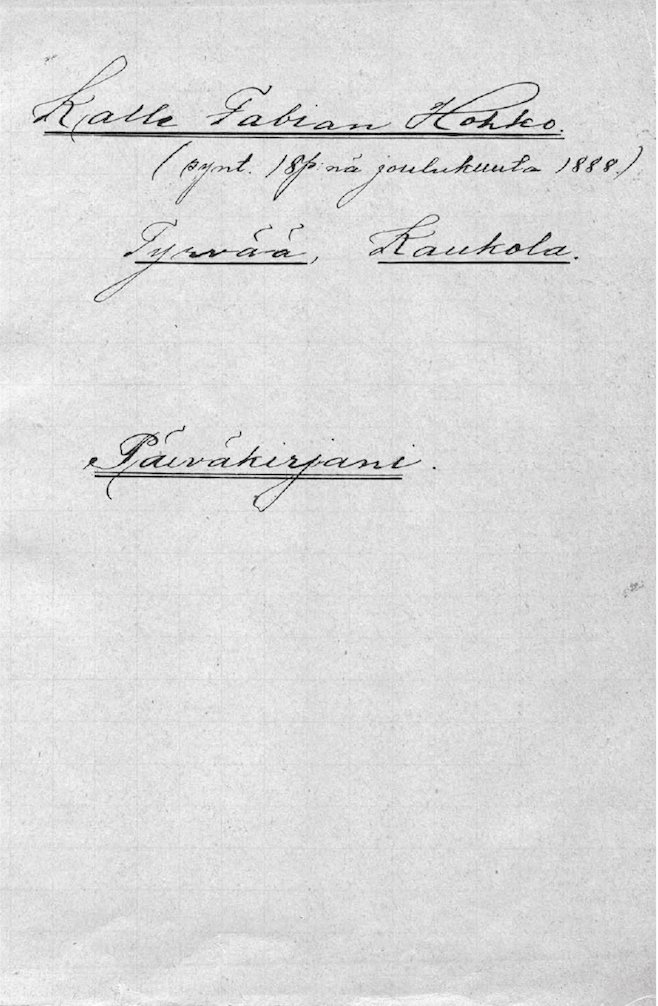 Kalle Fabian Hohko.
(synt. 18p:nä joulukuuta 1888.)
Tyrvää, Kaukola.
Päiväkirjani.